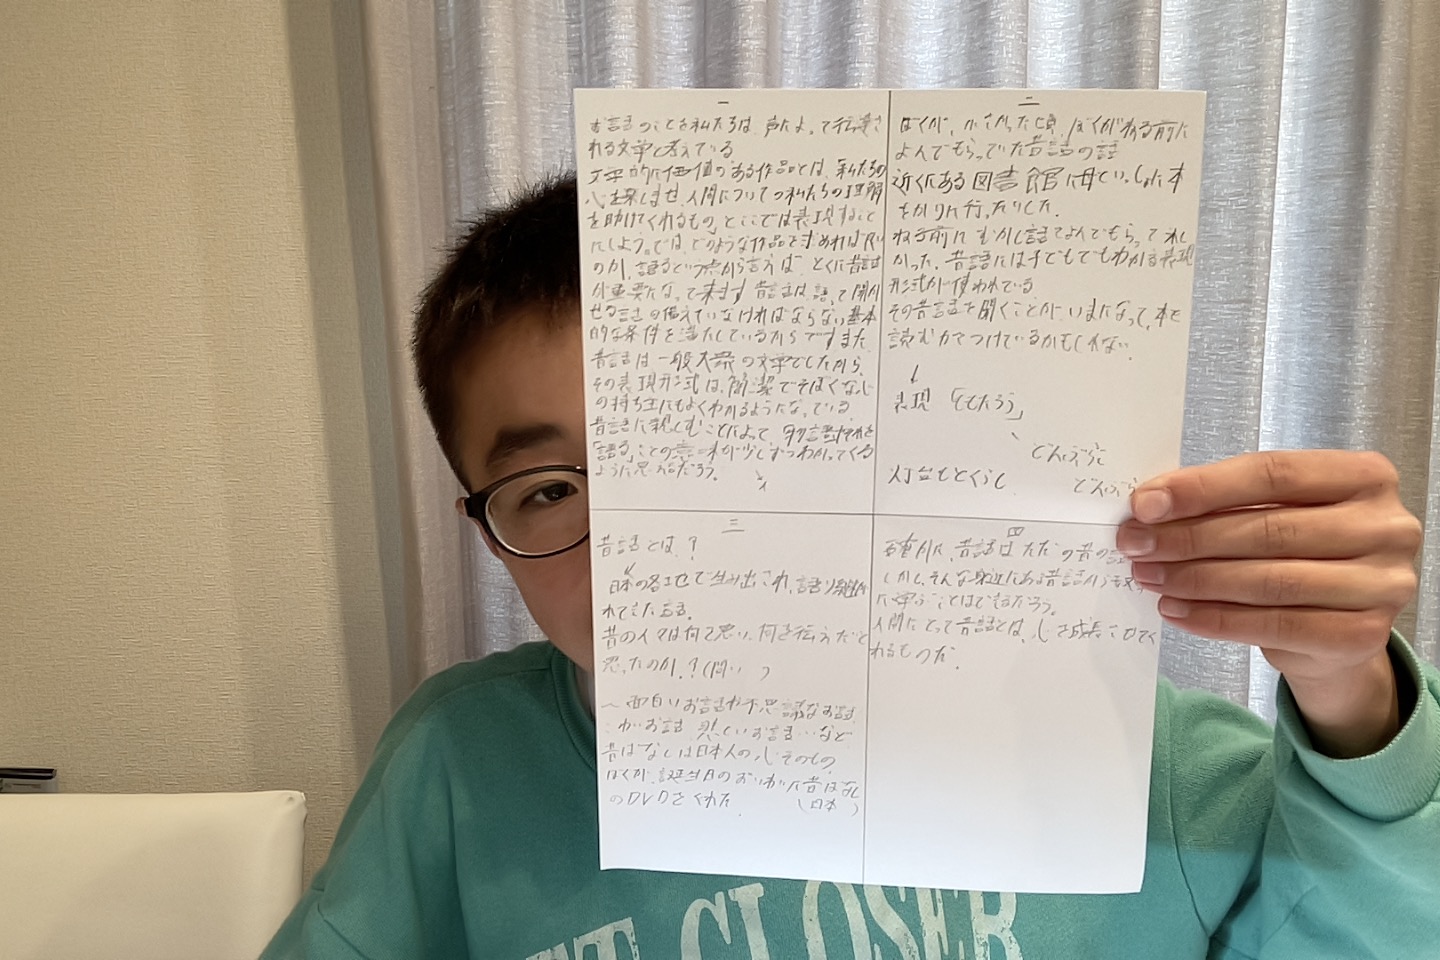 一
お話のことを私たちは、声によって伝達さ
れる文学と考えている
文学的に価値のある作品とは、私たちの
心を楽しませ、人間についての私たちの理解
を助けてくれるもの、とここでは表現すること
にしよう。では、どのような作品を求めれば良い
のか、語るという点から言えば、とくに昔話
が重要になって来ます 昔話は、語って聞か
せる話の備えていなければならない基本
的な条件を満たしているからですまた
昔話は一般大衆の文学でしたから、
その表現形式は、簡潔でそぼくな心
の持ち主にもよくわかるようになっている
昔話に親しむことによって、
「語る」ことの意味が少しずつわかってくる
ように思えるだろう。
二
ぼくが、小さかった頃、ぼくがねる前に
よんでもらっていた昔話の話
近くにある図書館に母といっしょに本
をかりに行ったりした。
ねる前に むかし話をよんでもらってうれし
かった、昔話には子どもでもわかる表現
形式が使われている
その昔話を聞くことが、いまになって、本を
読む力をつけているかもしれない。
表現
どんぶらこ
どんぶら
灯台もとくらし
三
昔話とは、?
日本の各地で生み出され、語り継が
れてきた話。
昔の人々は何を思い、何を伝えたいと
思ったのか、?(問い )
〜面白いお話や不思議なお話
こわいお話 悲しいお話…など
昔ばなしは日本人の心そのもの
ぼくが、誕生日のおいわいに昔ばなし
のDVDをくれた (日本 )
四
確かに、昔話はただの昔の話
しかし、そんな身近にある昔話から
に学ぶことはできるだろう。
人間にとって昔話とは、心を成長させてく
れるものだ。
CLOSER